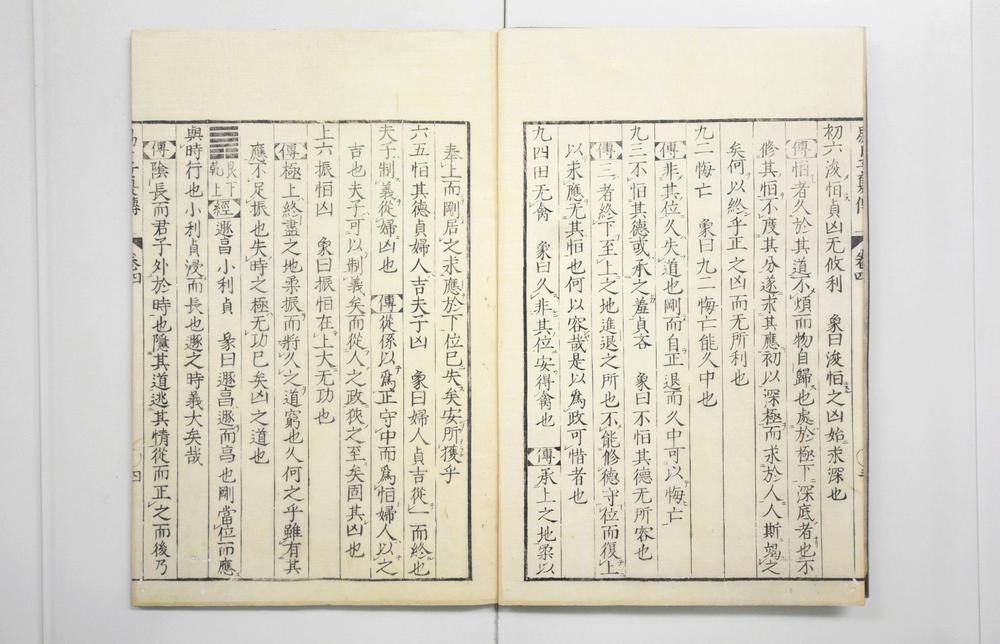 初六浚恒貞凶无攸利 象曰浚恒之凶始求深也
傳恒者久於其道不煩而物自歸也處於極下深底者也不
修其恒不度其分遂求其應初以深極而求於人人斯竭之
矣何以終乎正之凶而无所利也
九二悔亡 象曰九二悔亡能久中也
傳非其位久失道也剛而自正退而久中可以悔亡
九三不恒其德或承之羞貞吝 象曰不恒其德无所容也
傳三者終下至上之地進退之所也不能修德守位而復上
以求應无其恒也何以容哉是以爲政可惜者也
九四田无禽 象曰久非其位安得禽也 傳承上之地柔以
奉上而剛居之求應於下位已失矣安所獲乎
六五恒其德貞婦人吉夫子凶 象曰婦人貞吉從一而終也
夫子制義從婦凶也 傳從係以爲正守中而爲恒婦人以之
吉也夫子可以制義矣而從人之政狹之至矣固其凶也
上六振恒凶 象曰振恒在上大无功也
傳極上終盡之地柔振而將久之道窮也久何之乎雖有其
應不足振也失時之極无功已矣凶之道也
艮下乾上 經遯亨小利貞 彖曰遯亨遯而亨也剛當位而應
與時行也小利貞浸而長也遯之時義大矣哉
傳陰長而君子外於時也隱其道逃其情從而正之而後乃
卷四
四